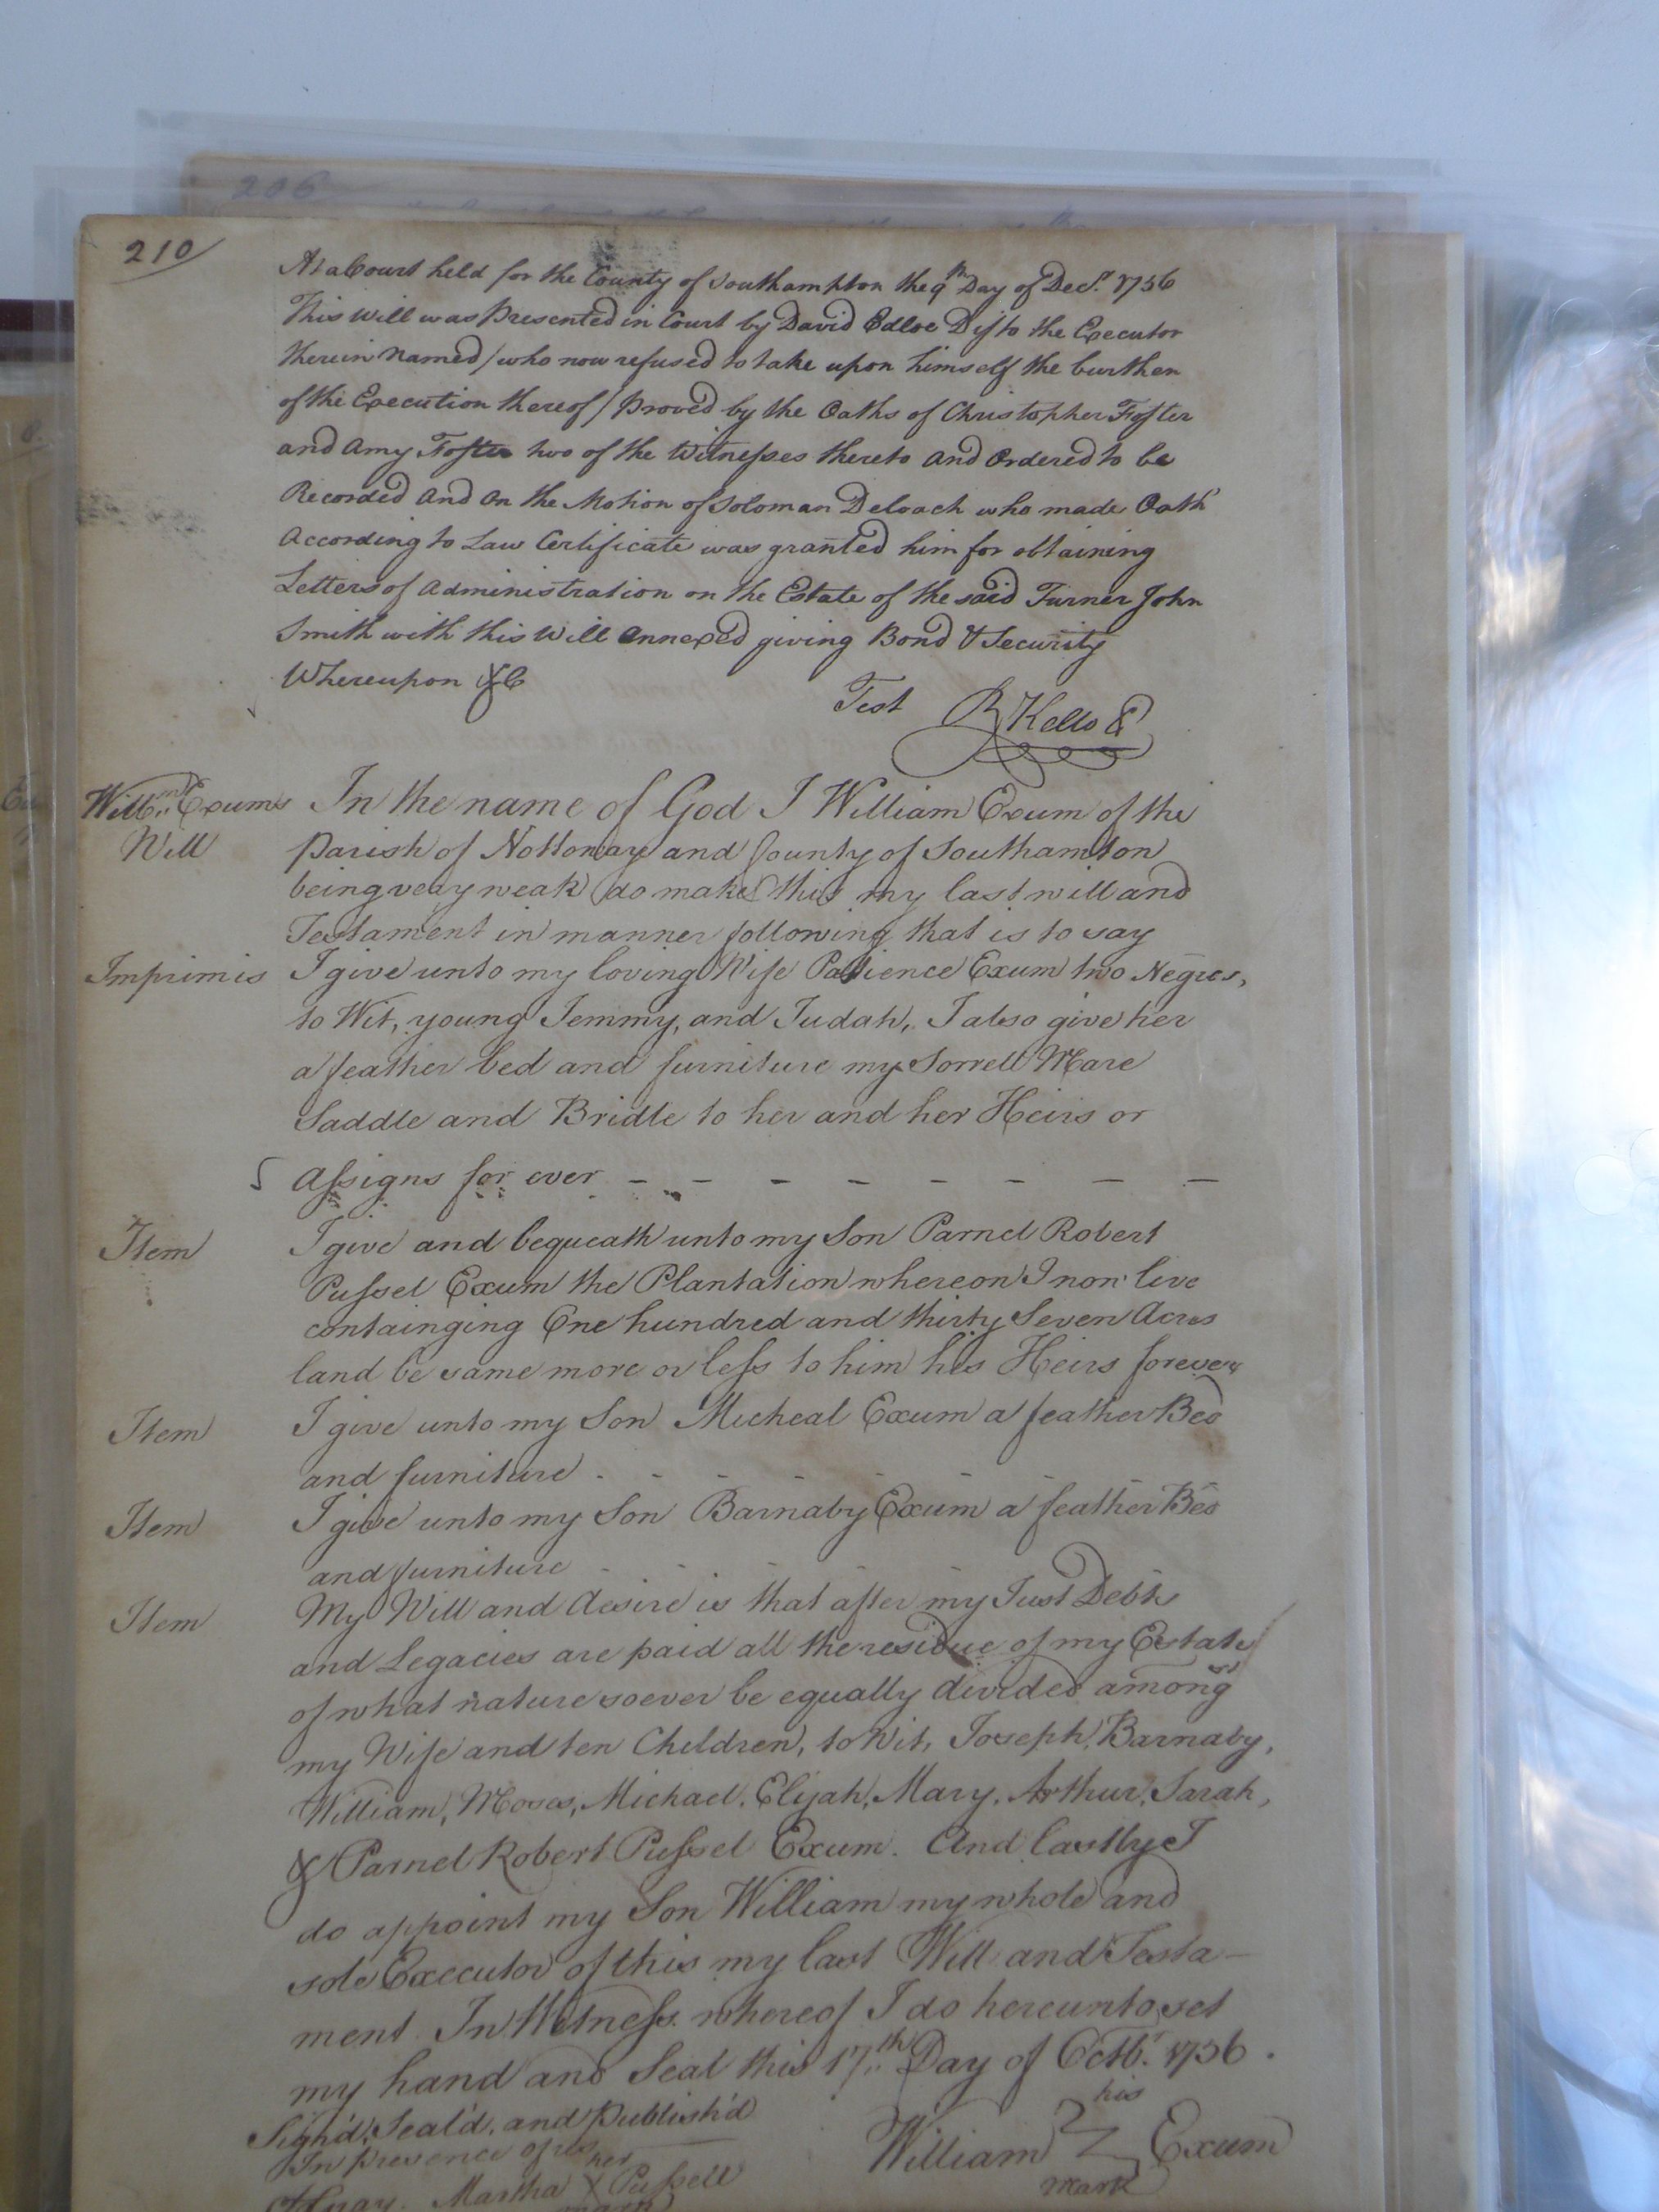 206
210
At a Court held for the County of Southampton the 9th Day of Decr. 1756
This Will was Presented in Court by David Edloe Dis to the Executor
therein Named / who now refused to take upon himself the burthen
of the Execution thereof / proved by the Oaths of Christopher Foster
and Amy Foster two of the Witnesses thereto and Ordered to be
Recorded and On the Motion of Soloman Deloach who made Oath
According to Law Certificate was granted him for obtaining
Letters of Administration on the Estate of the said Turner John
Smith with this Will Annexed giving Bond & Security
Whereupon &C
Test R Kello
Willm. Exums In the name of God I William Exum of the
Will Parish of Nottoway and County of Southamton
being very weak do make this my last will and
Testament in manner following that is to say
Imprimis I give unto my loving Wife Patience Exum two Negros,
to Wit, young Jemmy, and Judah, I also give her
a feather bed and furniture my Sorrell Mare
Saddle and Bridle to her and her Heirs or
Assigns for ever - - - - - - - -
Item I give and bequeath unto my Son Parnel Robert
Pussel Exum the Plantation whereon I now live
containging One hundred and thirty Seven Acres
land be same more or less to him his Heirs forever
Item I give unto my Son Micheal Exum a feather Bed
and furniture - - - - - -
Item I give unto my Son Barnaby Exum a feather Bed
and furniture - - -
Item My Will and desire is that after my Just Debts
and Legacies are paid all the residue of my Estate
of what nature soever be equally divided amongst
my Wife and ten Children, to Wit, Joseph, Barnaby,
William, Moses, Michael, Elijah, Mary, Arthur, Sarah,
& Parnel Robert Pussel Exum. And lastly I
do appoint my Son William my whole and
sole Executor of this my last Will and Testa-
ment. In Witness whereof I do hereunto set
my hand and Seal this 17th Day of Octbr. 1756.
Sign'd, Seal'd, and Publish'd his
In presence of us William Exum
her mark
Martha X Pussell
mark